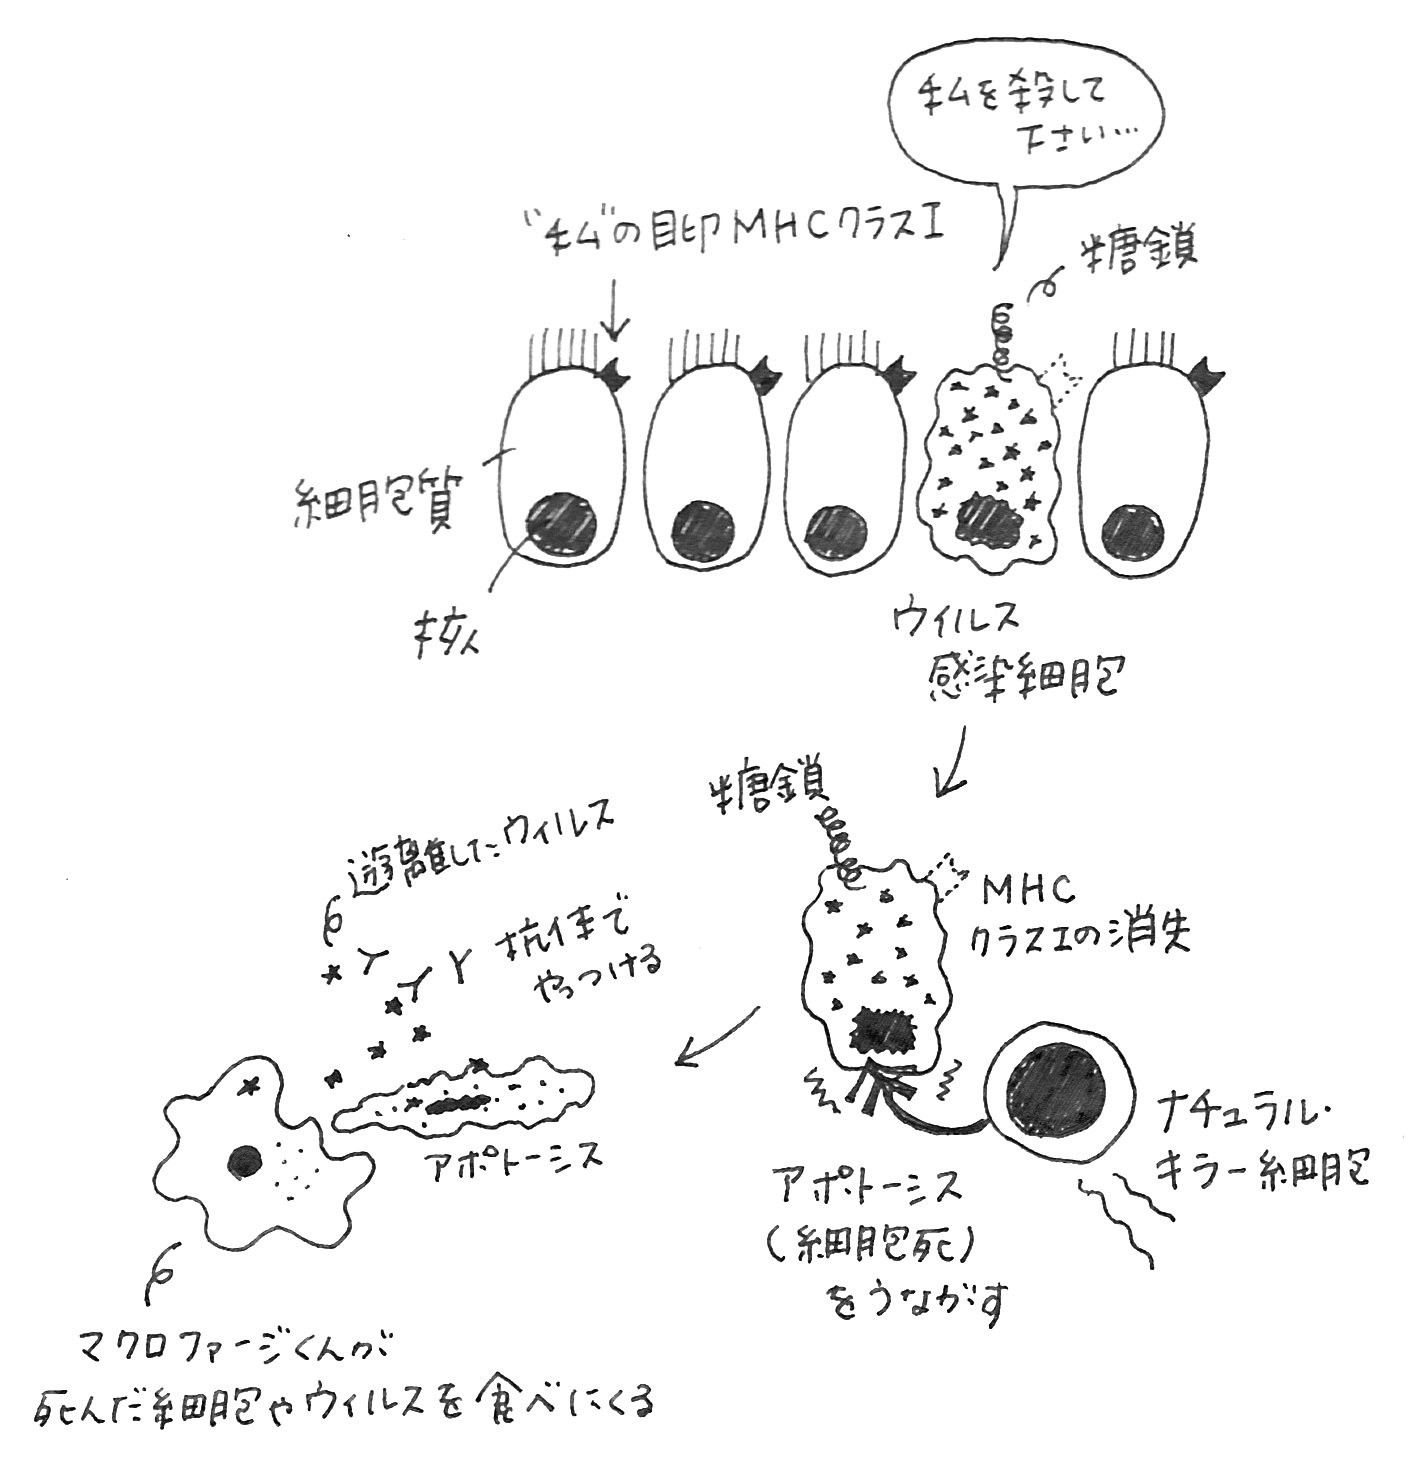 私を殺して
下さい…
"私"の目印MHCクラスI
糖鎖
細胞質
核
ウイルス
感染細胞
糖鎖
MHC
クラスIの消失
遊離したウィルス
抗体で
やっつける
ナチュラル・
キラー細胞
アポトーシス
(細胞死)
をうながす
アポトーシス
マクロファージくんが
死んだ細胞やウィルスを食べにくる